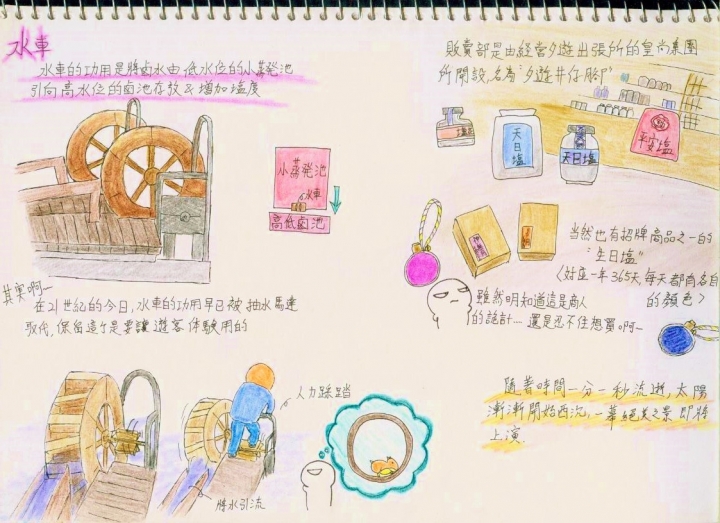 水車
水車的功用是將鹵水由低水位的小蒸発池
引向高水位的鹵池存放&增加塩度
小蒸発池
水車
高低鹵池
其実啊~
在21世紀的今日,水車的功用早已被抽水馬達
取代,保留這个是要讓遊客体験用的
人力踩踏
將水引流
販賣部是由經営夕遊出張所的皇尚集團
所開設,名為"夕遊井仔腳"
天日塩
天日塩
平安塩
当然也有招牌商品之一的
"生日塩"
<対应一年365天,每天都有各自
的顏色>
雖然明知道這是商人
的詭計...還是忍不住想買。啊~
随著時間一分一秒流逝,太陽
漸漸開始西沉,一幕絕美之景即將
上演